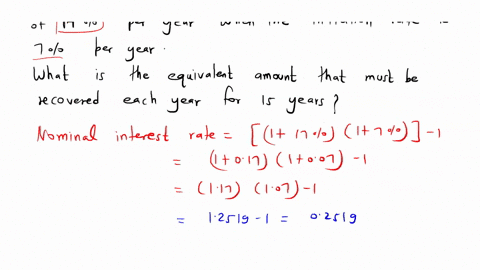 of 17% per year when the inflation rate is
7% per year.
What is the equivalent amount that must be
recovered each year for 15 years?
Nominal interest rate = [(1+ 17%) (1+7%)] -1
= (1+0.17) (1+0.07) -1
= (1.17) (1.07) -1
= 1.2519 -1 = 0.2519